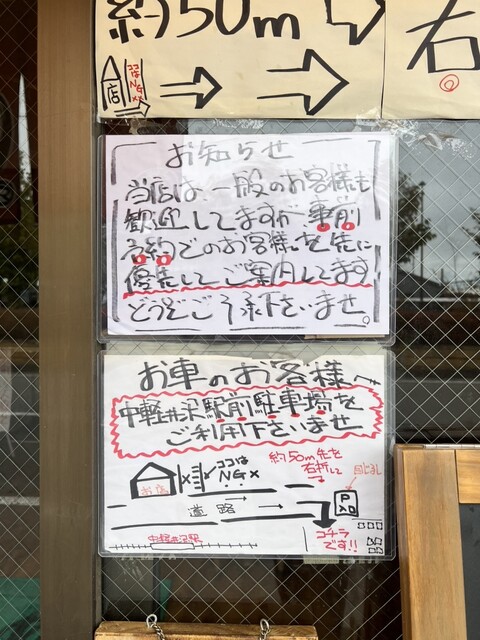 約50m
右
店
ココはNG
お知らせ
当店は、一般のお客様も
歓迎してますが事前
予約でのお客様を先に
優先してご案内してます
どうぞご了承下さいませ。
お車のお客様へ
中軽井沢駅前駐車場を
ご利用下さいませ
お店
ココは
NG
約50m先を
右折して
P
道路
コチラ
です!!
中軽井沢駅